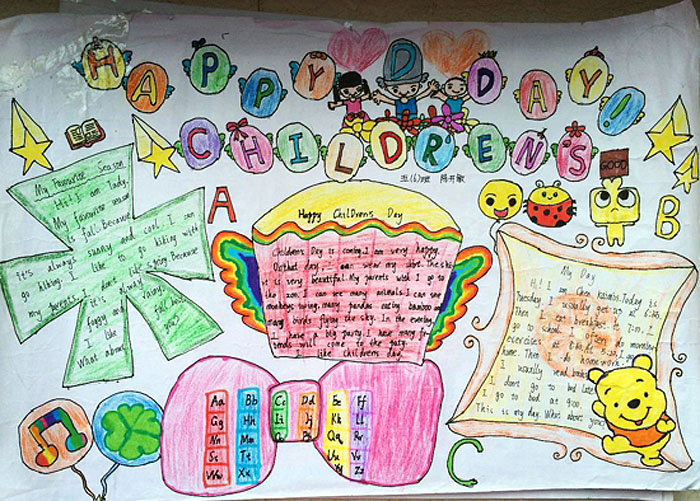 HAPPY D DAY!
CHILDREN'S
五(6)班
GOOD
A
B
C
My Favourite Season
Hi! I am lady.
My favourite season
is fall. Because
it's always sunny and cool. I can
go hiking. I like to go hiking with
my parents. I don't like spring. Because
it's always rainy,
foggy and
like
What about you?
Happy Childrens Day
Childrens Day is coming. I am very happy.
On that day, wear my skirt. The ski
it is very beautiful. My parents wish I go to
the zoo. I can see many animals. I can see
monkeys swing, many pandas eating bamboo an
many birds flying the sky. In the evening,
I have a big party. I have many fri
ends will come to the paty.
I like childrens day.
My Day
Hi! I am Chen Today is
Tuesday. I usually get up at 6:45.
Then I eat breakfast at 7:10. I
go to school. I often do morning
exercises at
home. Then I do homework.
I usually read books.
I don't go to bed late
I go to bed at 9:00
This is my day. What about you?
Aa Bb Cc Dd Ee Ff
Gg Hh Ii Jj Kk Ll
Mm Nn Qq Rr
Ss Tt Uu Vv
Ww Xx Yy Zz